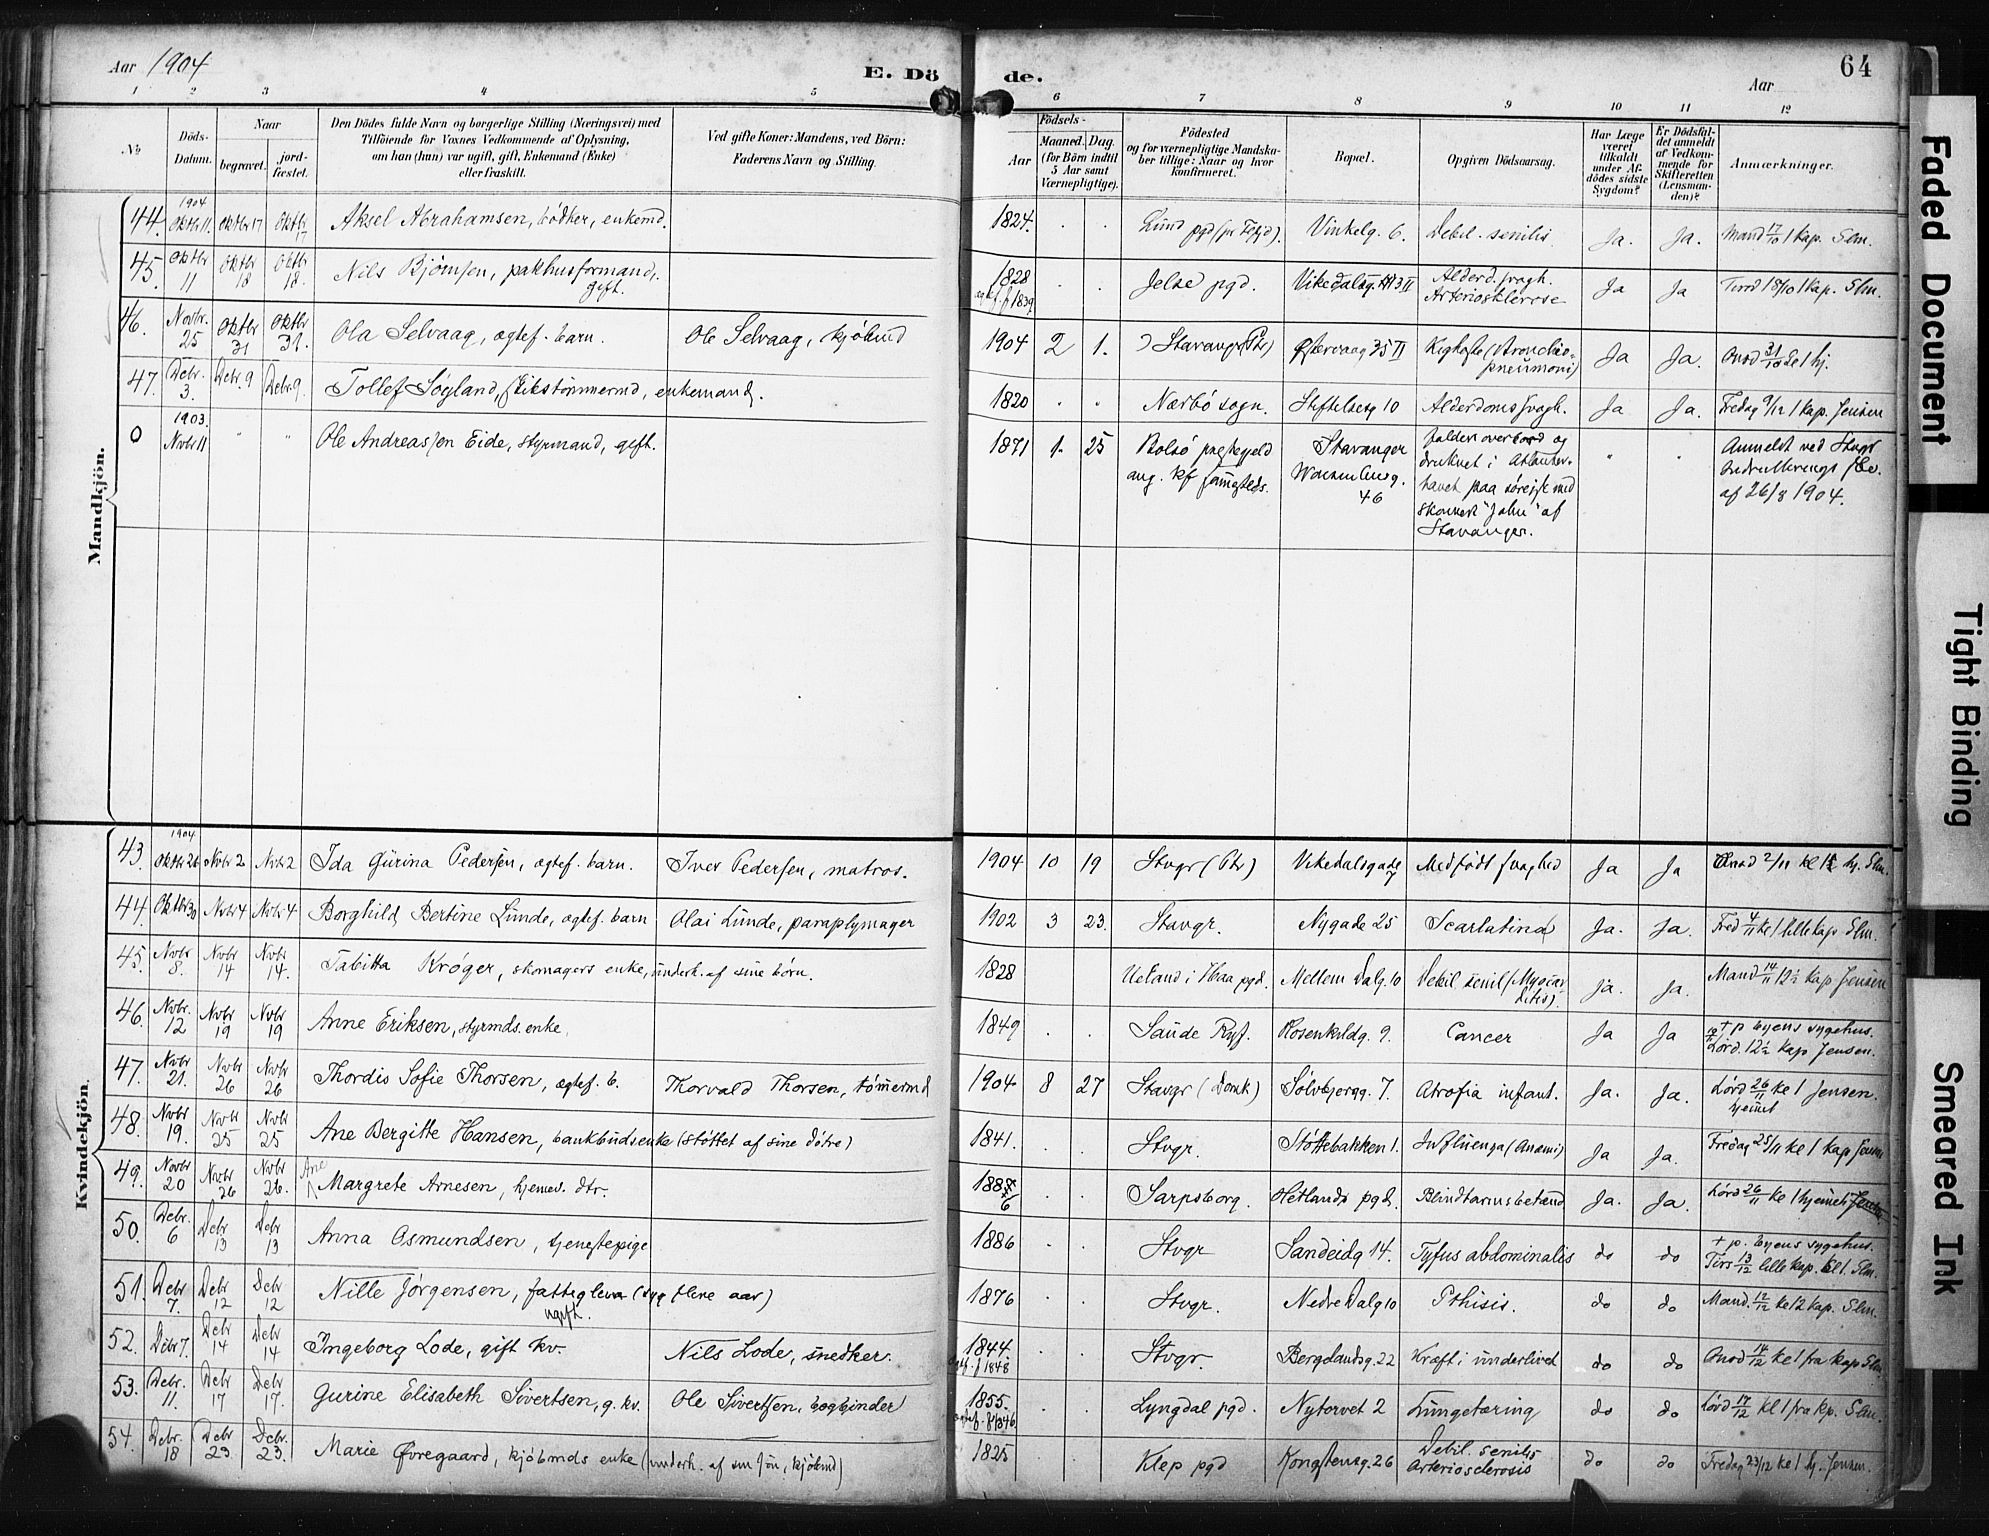 Aar 1904
E. Döde.
Aar
64
1 2 3 4 5 6 7 8 9 10 11 12
No
Döds-Datum.
Naar
begravet.
jord-fæstet.
Den Dödes fulde Navn og borgerlige Stilling (Næringsvei) med
Tilföiende for Voxnes Vedkommende af Oplysning,
om han (hun) var ugift, gift, Enkemand (Enke)
eller fraskilt.
Ved gifte Koner: Mandens, ved Börn:
Faderens Navn og Stilling.
Födsels-
Aar
Maaned. Dag.
(for Börn indtil
5 Aar samt
Værnepligtige).
Födested
og for værnepligtige Mandska-
ber tillige: Naar og hvor
konfirmeret.
Bopæl.
Opgiven Dödsaarsag.
Har Læge
været
tilkaldt
under Af-
dödes sidste
Sygdom?
Er Dödsfal-
det anmeldt
af Vedkom-
mende for
Skifteretten
(Lensman-
den)?
Anmærkninger.
Mandkjön.
44. 1904 Oktbr 11. Oktbr 17 Oktbr 17 Aksel Abrahamsen, bødker, enkemd. 1824. Lund pgd Vinkelg. 6. Debil. senilis Ja. Ja. Mand 17/10 1 kap. Slm.
45. Oktbr 11 Oktbr 18 Oktbr 18. Nils Bjørnsen, pakhusformand, gift. 1828 Jelse pgd. Vikedalsg. Alderd.svagh. Arteriosklerose Ja Ja Tirsd 18/10 1 kap. Slm.
46. Novbr. 25 Oktbr 31 Oktbr 31. Ola Selvaag, ægtef. barn. Ole Selvaag, kjøbmd 1904 2 1. Stavanger (Ptr) Østervaag 35 II Kighoste (Bronchio-pneumoni) Ja Ja. Hj.
47. Debr. 3. Debr. 9 Debr. 9. Tollef Søyland, enkemand. 1820 Nærbø sogn. Stiftelsesg 10 Alderdomssvagh. Ja Ja. Fredag 9/12 1 kap. Jensen
0 1903. Novbr 11 " " Ole Andreassen Eide, styrmand, gift. 1871 1. 25 Bolsø prestegjeld Stavanger 46 falden overbord og druknet i Atlanterhavet paa sørejse med af Stavanger. " " Anmeldt ved Stvgr af 26/8 1904.
Kvindekjön.
43. 1904 Oktbr 26 Novbr 2 Novbr 2 Ida Gurina Pedersen, ægtef. barn. Iver Pedersen, matros. 1904 10 19 Stvgr (Ptr) Vikedalsgade 7 Medfødt svaghed Ja Ja Onsd 2/11 kl hj. Slm.
44. Oktbr 30 Novbr 4 Novbr 4 Borghild Bertine Lunde, ægtef. barn Olai Lunde, paraplymager 1902 3 23. Stavgr. Nygade 25 Scarlatina Ja. Ja. Fred 4/11 kl 1 lille kap Slm.
45. Novbr 8. Novbr 14 Novbr 14. Tabitta Krøger, skomagers enke, underh. af sine børn. 1828 Ueland i Haa pgd. Mellem Dalg. 10 Debil senil (Myocarditis). Ja. Ja. Mand 14/11 12½ kap Jensen
46. Novbr. 12 Novbr 19 Novbr 19 Anne Eriksen, styrmds. enke. 1849 Saude Ryf. Rosenkildg. 9. Cancer Ja Ja + p byens sygehus. Lørd. 12½ kap Jensen.
47. Novbr 21. Novbr 26 Novbr 26 Thordis Sofie Thorsen, ægtef. b. Thorvald Thorsen, tømmermd 1904 8 27 Stavgr (Domk) Sølvbjergg. 7. Atrofia infant. Ja. Ja. Lørd 26/11 kl 1 hjemmet Jensen.
48. Novbr 19. Novbr 25 Novbr 25 Ane Bergitte Hansen, bankbudsenke (støttet af sine døtre) 1841. Stvgr. Støttebakken 1. Influenza (Anæmi) Ja Ja. Fredag 25/11 kl 1 kap Jensen
49. Novbr 20 Novbr 26 Novbr 26. Ane Margrete Arnesen, hjemmev. dtr. 1886 Sarpsborg. Hetlands pgd. Blindtarmsbetænd Ja. Ja. Lørd 26/11 kl 1 hjemmet Jensen
50. Debr. 6 Debr 13 Debr 13 Anna Osmundsen, tjenestepige 1886 Stvgr Sandeidg 14. Tyfus abdominalis do do + p. byens sygehus. Tirs 13/12 lille kap. kl 1. Slm.
51. Debr 7. Debr 12 Debr 12 Nille Jørgensen, fattiglem (syg flere aar) ugift. 1876 Stvgr. Nedre Dalg 10 Pthisis. do do Mand. 12/12 kl 2 kap. Slm.
52. Debr 7. Debr 14 Debr 14 Ingeborg Lode, gift kv. Nils Lode, snedker. 1844. ægtef. f 1848 Stvgr. Berglandsg. 22 Kræft i underlivet do do Onsd 14/12 kl 1 fra kap Slm.
53. Debr. 11. Debr 17 Debr 17. Gurine Elisabeth Sivertsen, g. kv. Ole Sivertsen, bogbinder 1855. ægtef. f 1846 Lyngdal pgd. Nytorvet 2 Lungetæring do do Lørd 17/12 kl 1 fra kp. Slm.
54. Debr. 18 Debr 23 Debr. 23. Marie Øvregaard, kjøbmds enke (underh. af sin søn, kjøbmd) 1825 Klep pgd Kongstensg. 26 Debil. senilis Arteriosclerosis do do Fredag 23/12 kl 1 hj. Jensen.
Faded Document
Tight Binding
Smeared Ink